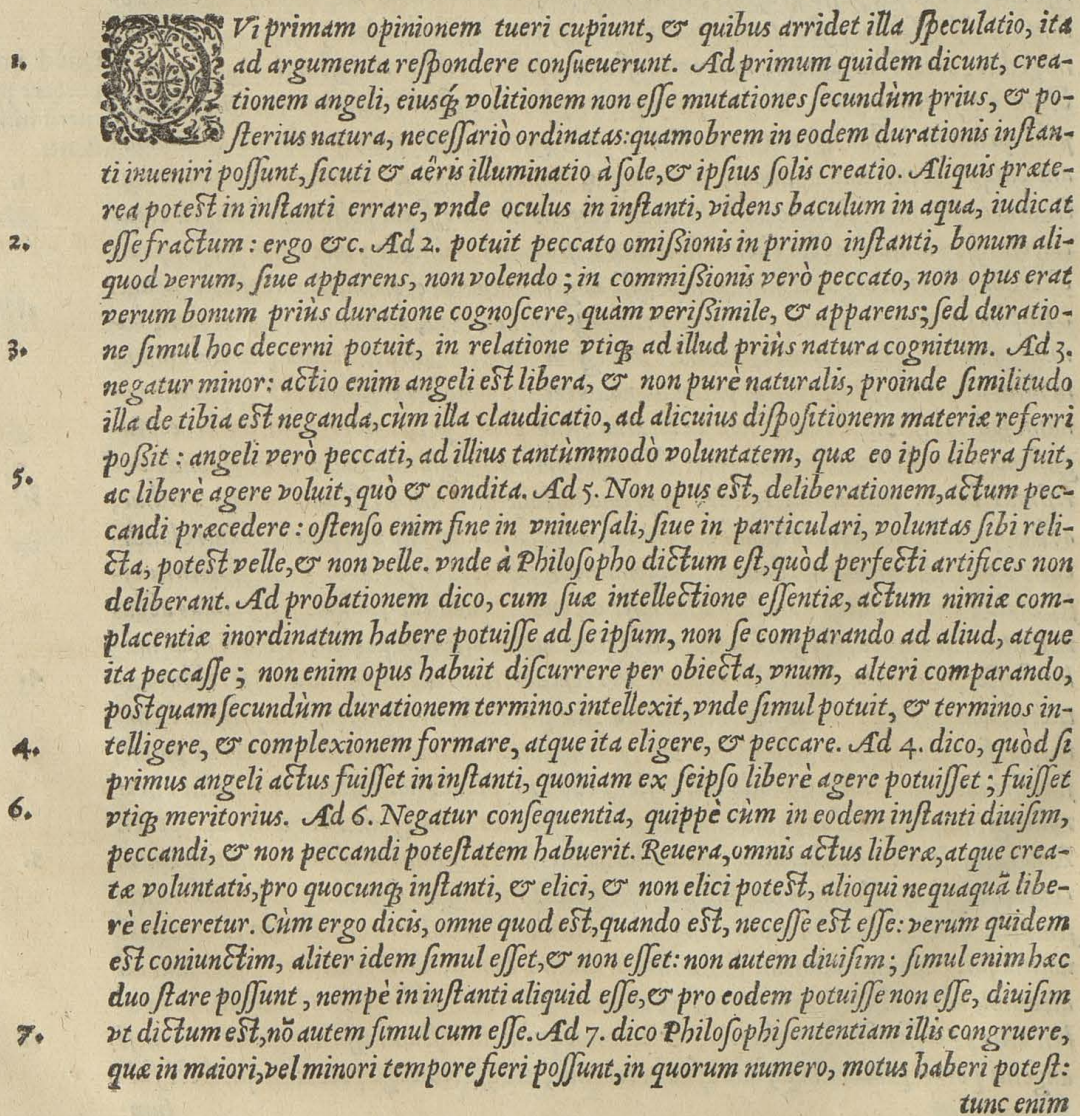 QVi primam opinionem tueri cupiunt, & quibus arridet illa speculatio, ita
1. ad argumenta respondere consueuerunt. Ad primum quidem dicunt, crea-
tionem angeli, eiusq́; volitionem non esse mutationes secundùm prius, & po-
sterius natura, necessariò ordinatas: quamobrem in eodem durationis instan-
ti inueniri possunt, sicuti & aëris illuminatio à sole, & ipsius solis creatio. Aliquis præte-
rea potest in instanti errare, vnde oculus in instanti, videns baculum in aqua, iudicat
2. esse fractum: ergo &c. Ad 2. potuit peccato omissionis in primo instanti, bonum ali-
quod verum, siue apparens, non volendo; in commissionis verò peccato, non opus erat
verum bonum priùs duratione cognoscere, quàm verisimile, & apparens; sed duratio-
3. ne simul hoc decerni potuit, in relatione vtiq; ad illud priùs natura cognitum. Ad 3.
negatur minor: actio enim angeli est libera, & non purè naturalis, proinde similitudo
illa de tibia est neganda, cùm illa claudicatio, ad alicuius dispositionem materiæ referri
possit: angeli verò peccati, ad illius tantùmmodò voluntatem, quæ eo ipso libera fuit,
5. ac liberè agere voluit, quò & condita. Ad 5. Non opus est, deliberationem, actum pec-
candi præcedere: ostenso enim fine in vniuersali, siue in particulari, voluntas sibi reli-
cta, potest velle, & non velle. vnde à Philosopho dictum est, quòd perfecti artifices non
deliberant. Ad probationem dico, cum suæ intellectione essentiæ, actum nimiæ com-
placentiæ inordinatum habere potuisse ad se ipsum, non se comparando ad aliud, atque
ita peccasse; non enim opus habuit discurrere per obiecta, vnum, alteri comparando,
postquam secundùm durationem terminos intellexit, vnde simul potuit, & terminos in-
4. telligere, & complexionem formare, atque ita eligere, & peccare. Ad 4. dico, quòd si
primus angeli actus fuisset in instanti, quoniam ex seipso liberè agere potuisset; fuisset
6. vtiq; meritorius. Ad 6. Negatur consequentia, quippè cùm in eodem instanti diuisim,
peccandi, & non peccandi potestatem habuerit. Reuera, omnis actus liberæ, atque crea-
tæ voluntatis, pro quocunq; instanti, & elici, & non elici potest, alioqui nequaquā libe-
rè eliceretur. Cùm ergo dicis, omne quod est, quando est, necesse est esse: verum quidem
est coniunctim, aliter idem simul esset, & non esset: non autem diuisim; simul enim hæc
duo stare possunt, nempè in instanti aliquid esse, & pro eodem potuisse non esse, diuisim
7. vt dictum est, nō autem simul cum esse. Ad 7. dico Philosophi sententiam illis congruere,
quæ in maiori, vel minori tempore fieri possunt, in quorum numero, motus haberi potest:
tunc enim